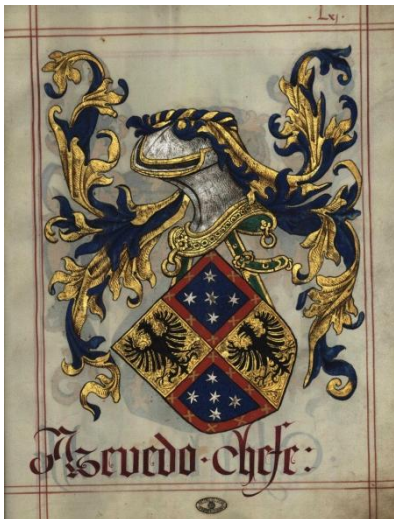 ·Lxj·
Azevedo·chefe: